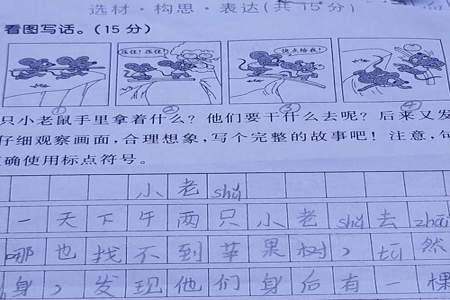 选材·构思·表达(共15分)
看图写话。(15分)
压住！压住！
快点给我！
① ② ③ ④
只小老鼠手里拿着什么？他们要干什么去呢？后来又发
仔细观察画面，合理想象，写个完整的故事吧！注意，句
确使用标点符号。
小老shǔ
一天下午两只小老shǔ去zhāi
哪也找不到苹果树，tū然
身，发现他们身后有一棵